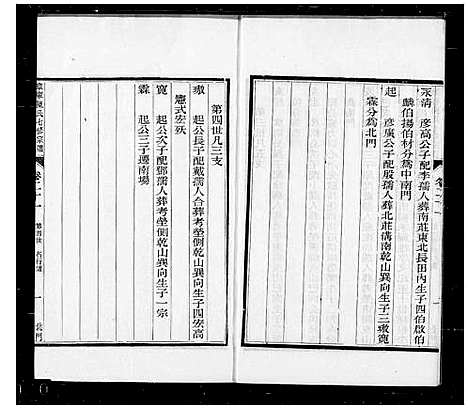 永清　彦高公子配李孺人葬南莊東北長田內生子四伯啟伯
麟伯揚伯材分爲中南門
起　彦廣公子配殷孺人葬北莊溝南乾山巽向生子三璥寬
霖分爲北門
第四世凡三支
璥　起公長子配戴孺人合葬考塋側乾山巽向生子四宏高
憲式宏烋
寬　起公次子配鄧孺人葬考塋側乾山巽向生子一宗
霖　起公三子遷南場
氏七修宗譜
卷二十一
第四世
一
北門